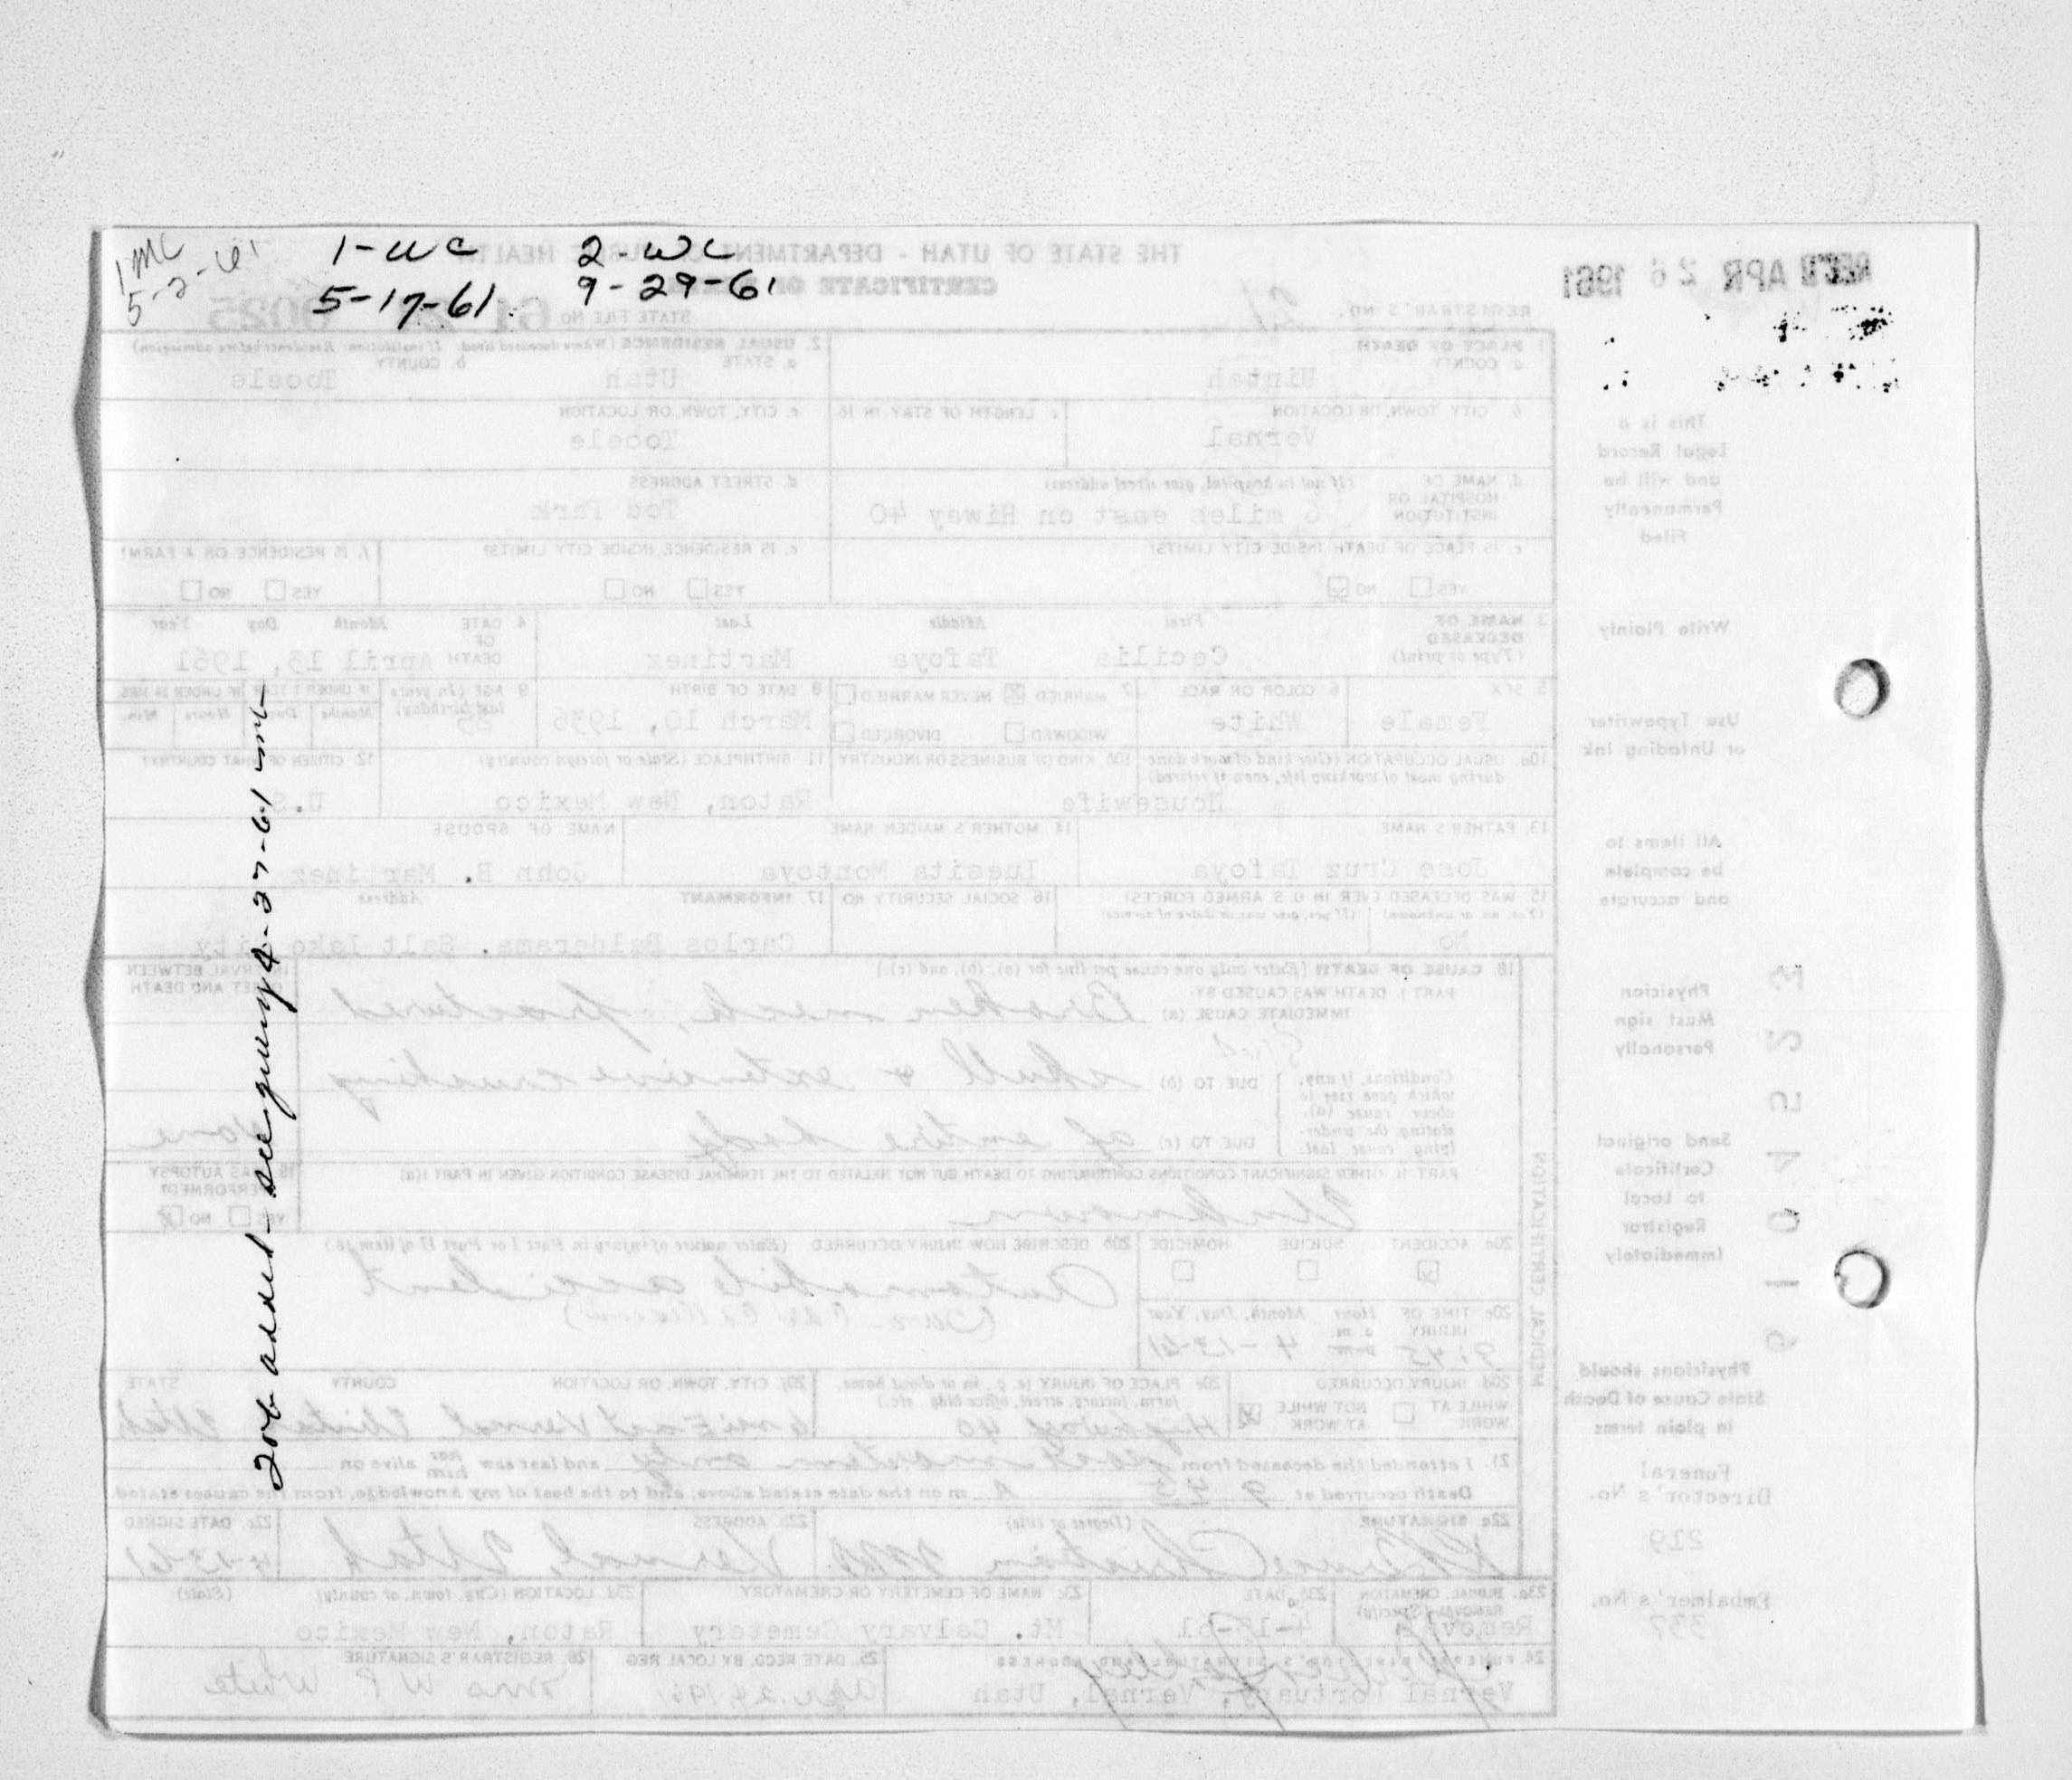 1 MC
5-2-61
1-WC
5-17-61
2-WC
9-29-61
20b added - see query 4-27-61 mt
REC'D APR 26 1961
THE STATE OF UTAH - DEPARTMENT OF PUBLIC HEALTH
CERTIFICATE OF
REGISTRAR'S NO. 21
STATE FILE NO. 61 0025
1. PLACE OF DEATH
a. COUNTY
Uintah
2. USUAL RESIDENCE (Where deceased lived. If institution: Residence before admission)
a. STATE
Utah
b. COUNTY
Tooele
b. CITY, TOWN, OR LOCATION
Vernal
c. LENGTH OF STAY IN 1b
c. CITY, TOWN OR LOCATION
Tooele
d. NAME OF HOSPITAL OR INSTITUTION (If not in hospital, give street address)
6 miles east on Hiway 40
d. STREET ADDRESS
Tod Park
e. IS PLACE OF DEATH INSIDE CITY LIMITS?
YES NO
e. IS RESIDENCE INSIDE CITY LIMITS?
YES NO
f. IS RESIDENCE ON A FARM?
YES NO
3. NAME OF DECEASED (Type or print)
First Middle Last
Cecilia Tafoya Martinez
4. DATE OF DEATH Month Day Year
April 13, 1961
5. SEX
Female
6. COLOR OR RACE
White
7. MARRIED NEVER MARRIED
WIDOWED DIVORCED
8. DATE OF BIRTH
March 10, 1936
9. AGE (In years last birthday)
25
IF UNDER 1 YEAR IF UNDER 24 HRS.
Months Days Hours Min.
10a. USUAL OCCUPATION (Give kind of work done during most of working life, even if retired)
Housewife
10b. KIND OF BUSINESS OR INDUSTRY
11. BIRTHPLACE (State or foreign country)
Raton, New Mexico
12. CITIZEN OF WHAT COUNTRY?
U.S.
13. FATHER'S NAME
Jose Cruz Tafoya
14. MOTHER'S MAIDEN NAME
Luesita Montoya
NAME OF SPOUSE
John B. Martinez
15. WAS DECEASED EVER IN U.S. ARMED FORCES?
(Yes, no, or unknown) (If yes, give war or dates of service)
No
16. SOCIAL SECURITY NO.
17. INFORMANT Address
Carlos Baldarama. Salt lake City
18. CAUSE OF DEATH [Enter only one cause per line for (a), (b), and (c).]
PART I. DEATH WAS CAUSED BY:
IMMEDIATE CAUSE (a) Broken neck, fractured
Conditions, if any, which gave rise to above cause (a), stating the underlying cause last.
DUE TO (b) skull & extensive crushing
DUE TO (c) of entire body
INTERVAL BETWEEN ONSET AND DEATH
None
PART II. OTHER SIGNIFICANT CONDITIONS CONTRIBUTING TO DEATH BUT NOT RELATED TO THE TERMINAL DISEASE CONDITION GIVEN IN PART I(a)
Unknown
19. WAS AUTOPSY PERFORMED?
YES NO
20a. ACCIDENT SUICIDE HOMICIDE
20b. DESCRIBE HOW INJURY OCCURRED. (Enter nature of injury in Part I or Part II of item 18.)
Automobile accident
(Two-Car Collision)
20c. TIME OF INJURY Hour Month, Day, Year
a.m. p.m.
9:45 4-13-61
20d. INJURY OCCURRED
WHILE AT WORK NOT WHILE AT WORK
20e. PLACE OF INJURY (e.g., in or about home, farm, factory, street, office bldg., etc.)
Highway 40
20f. CITY, TOWN, OR LOCATION COUNTY STATE
6 mi East Vernal Uintah Utah
21. I attended the deceased from post mortem only and last saw her him alive on
Death occurred at 9 45 A m on the date stated above; and to the best of my knowledge, from the causes stated.
22a. SIGNATURE (Degree or title)
M.D.
22b. ADDRESS
Vernal, Utah
22c. DATE SIGNED
4-13-61
23a. BURIAL, CREMATION, REMOVAL (Specify)
Removal
23b. DATE
23c. NAME OF CEMETERY OR CREMATORY
Mt. Calvary Cemetery
23d. LOCATION (City, town, or county) (State)
Raton, New Mexico
24. FUNERAL DIRECTOR'S SIGNATURE AND ADDRESS
Vernal Mortuary, Vernal, Utah
25. DATE REC'D. BY LOCAL REG.
Apr. 24, 1961
26. REGISTRAR'S SIGNATURE
Mrs W P White
MEDICAL CERTIFICATION
This is a
Legal Record
and will be
Permanently
Filed
Write Plainly
Use Typewriter
or Unfading Ink
All items to
be complete
and accurate
Physician
Must sign
Personally
Send original
Certificate
to Local
Registrar
Immediately
Physicians should
State Cause of Death
in plain terms
Funeral
Director's No.
219
Embalmer's No.
337